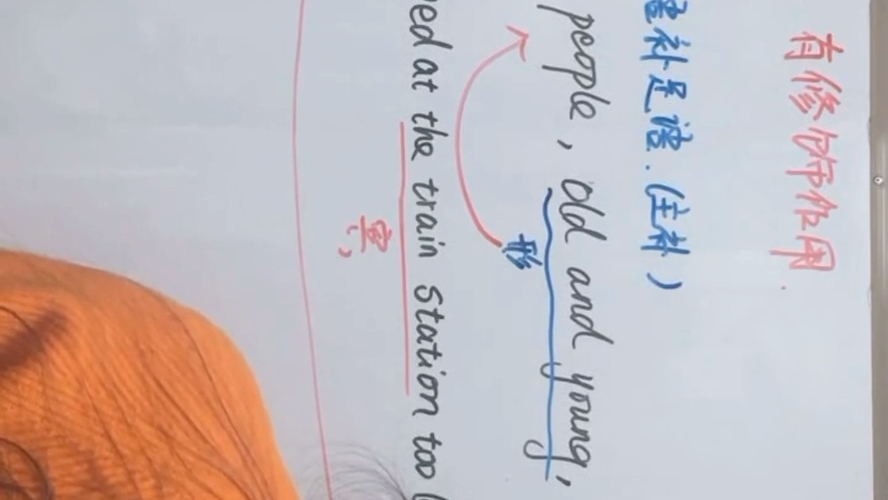 有修饰作用.
语补足语.(主补)
people, old and young,
形
at the train station too
宾